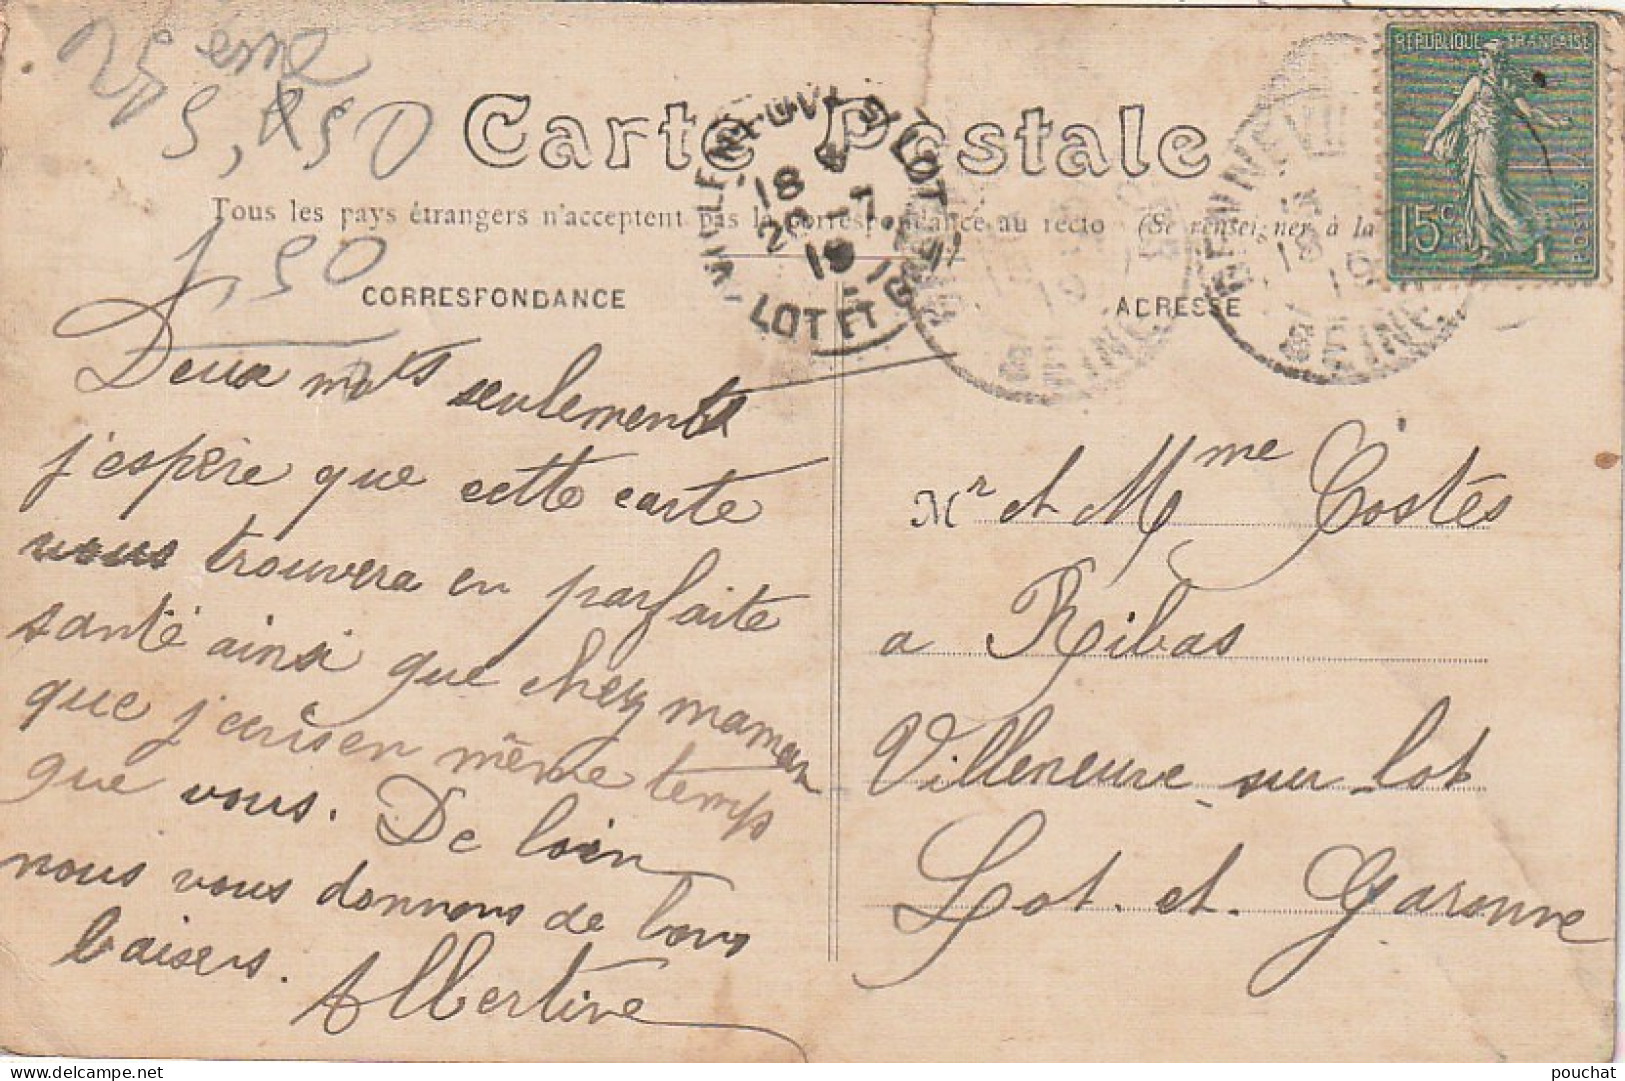 25 eme
5,50
1,50
Carte Postale
Tous les pays étrangers n'acceptent pas la correspondance au recto (Se renseigner à la
CORRESPONDANCE
Deux mots seulement
j'espère que cette carte
vous trouvera en parfaite
santé ainsi que chez maman
que j'ecris en même temps
que vous. De loin
nous vous donnons de bons
baisers. Albertine
ADRESSE
Mr et Mme Costés
a Ribas
Villeneuve sur lot
Lot. et. Garonne
REPUBLIQUE FRANÇAISE
15c
POSTES
VILLENEUVE S LOT
18
LOT ET
SEINE
delcampe.net
pouchat